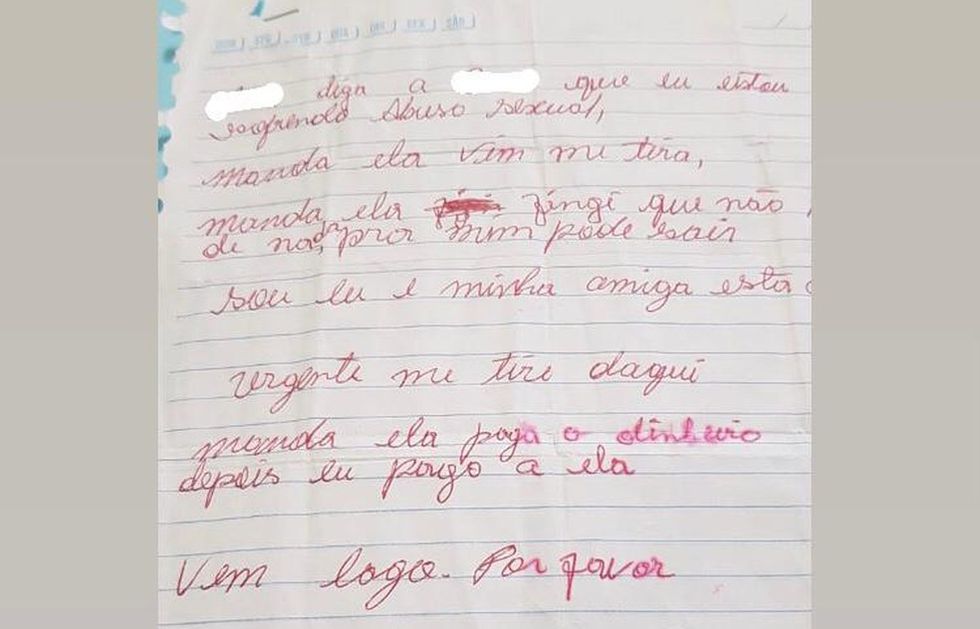 DOM SEG TER QUA QUI SEX SÁB
diga a que eu estou
sofrendo Abuso sexual,
manda ela vim me tira,
manda ela fingi que não
de nada, pra mim pode sair
sou eu e minha amiga esta
urgente me tire daqui
manda ela paga o dinheiro
depois eu pago a ela
Vem logo. Por favor